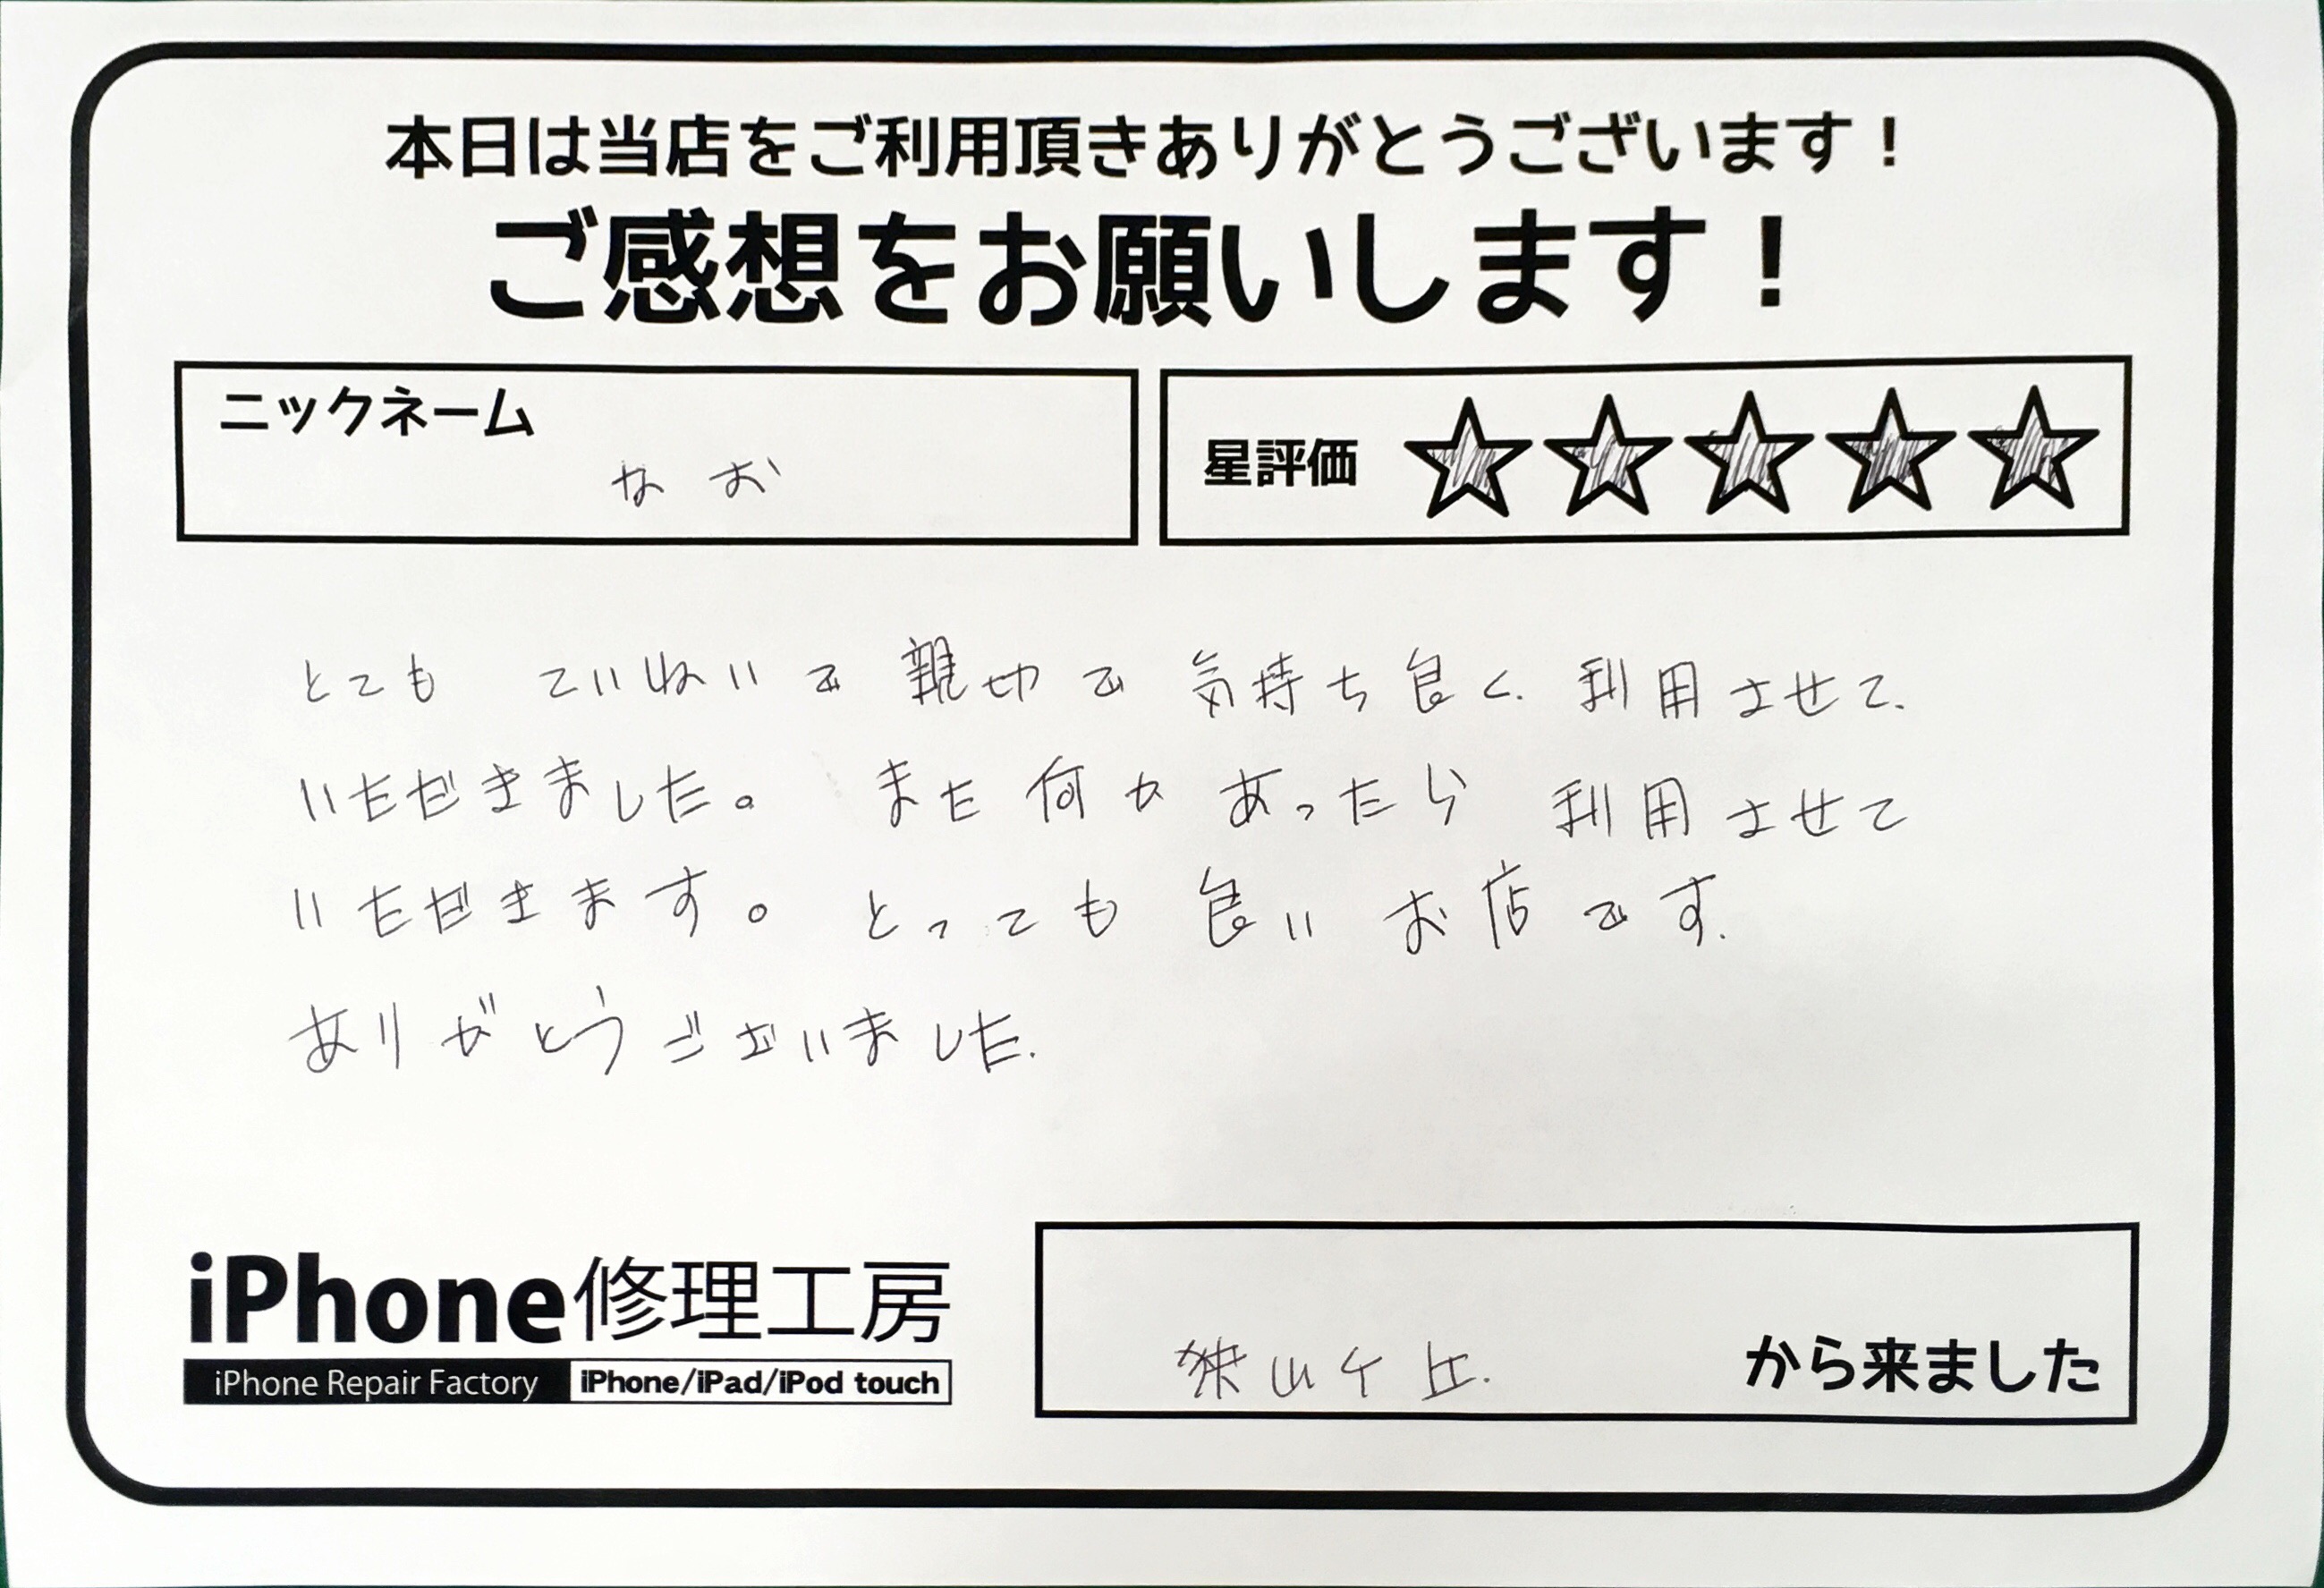 本日は当店をご利用頂きありがとうございます！
ご感想をお願いします！
ニックネーム
なお
星評価 ☆☆☆☆☆
とても ていねいで 親切で 気持ち良く. 利用させて.
いただきました。 また何か あったら 利用させて
いただきます。 とっても 良い お店です.
ありがとうございました.
iPhone修理工房
iPhone Repair Factory iPhone/iPad/iPod touch
狭山ケ丘. から来ました